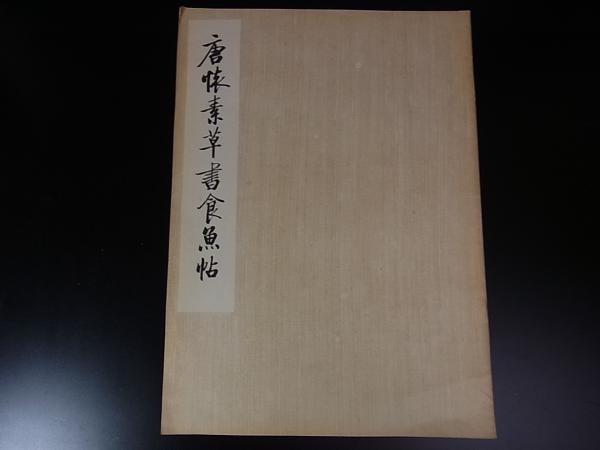 唐懐素草書食魚帖